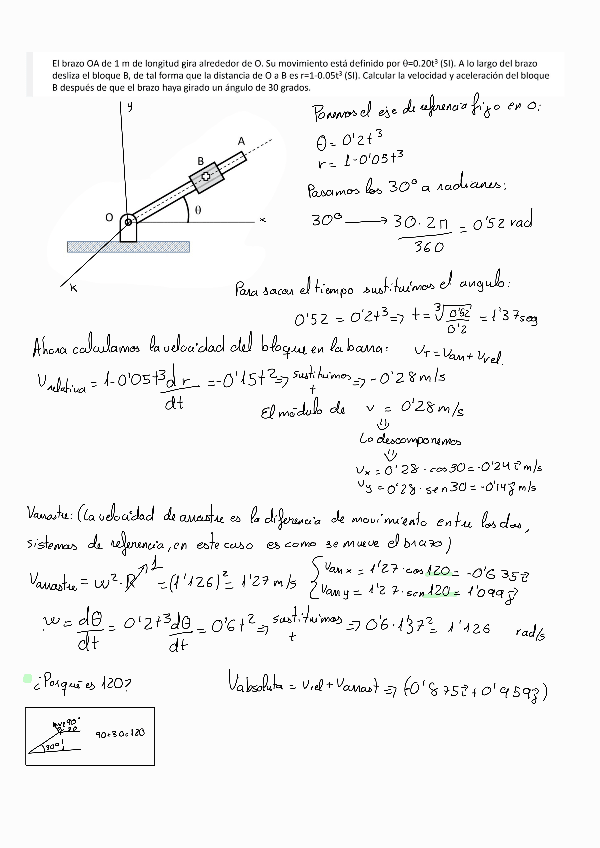 El brazo OA de 1 m de longitud gira alrededor de O. Su movimiento está definido por θ=0.20t³ (SI). A lo largo del brazo
desliza el bloque B, de tal forma que la distancia de O a B es r=1-0.05t³ (SI). Calcular la velocidad y aceleración del bloque
B después de que el brazo haya girado un ángulo de 30 grados.
y
A
B
O
θ
x
K
Ponemos el eje de referencia fijo en O:
θ = 0'2t³
r = 1-0'05t³
Pasamos los 30° a radianes:
30° → 30·2π/360 = 0'52 rad
Para sacar el tiempo sustituimos el angulo:
0'52 = 0'2t³ ⇒ t = ³√(0'52/0'2) = 1'37seg
Ahora calculamos la velocidad del bloque en la barra: V_T = Van + Vrel.
Vrelativa = 1-0'05t³ dr/dt = -0'15t² ⇒ sustituimos t ⇒ -0'28 m/s
El módulo de v = 0'28 m/s
⇓
Lo descomponemos
⇓
Vx = 0'28 · cos30 = -0'24 i m/s
Vy = 0'28 · sen30 = -0'14 j m/s
Varrastre: (La velocidad de arrastre es la diferencia de movimiento entre los dos,
sistemas de referencia, en este caso es como se mueve el brazo)
Varrastre = w²·R = (1'126)² = 1'27 m/s
1
Van x = 1'27 · cos120 = -0'635 i
Van y = 1'27 · sen120 = 1'099 j
w = dθ/dt = 0'2t³ dθ/dt = 0'6t² ⇒ sustituimos t ⇒ 0'6·1'37² = 1'126 rad/s
¿Porqué es 120?
Vabsoluta = Vrel + Varrast ⇒ (-0'875 i + 0'959 j)
90°
30°
90+30=120